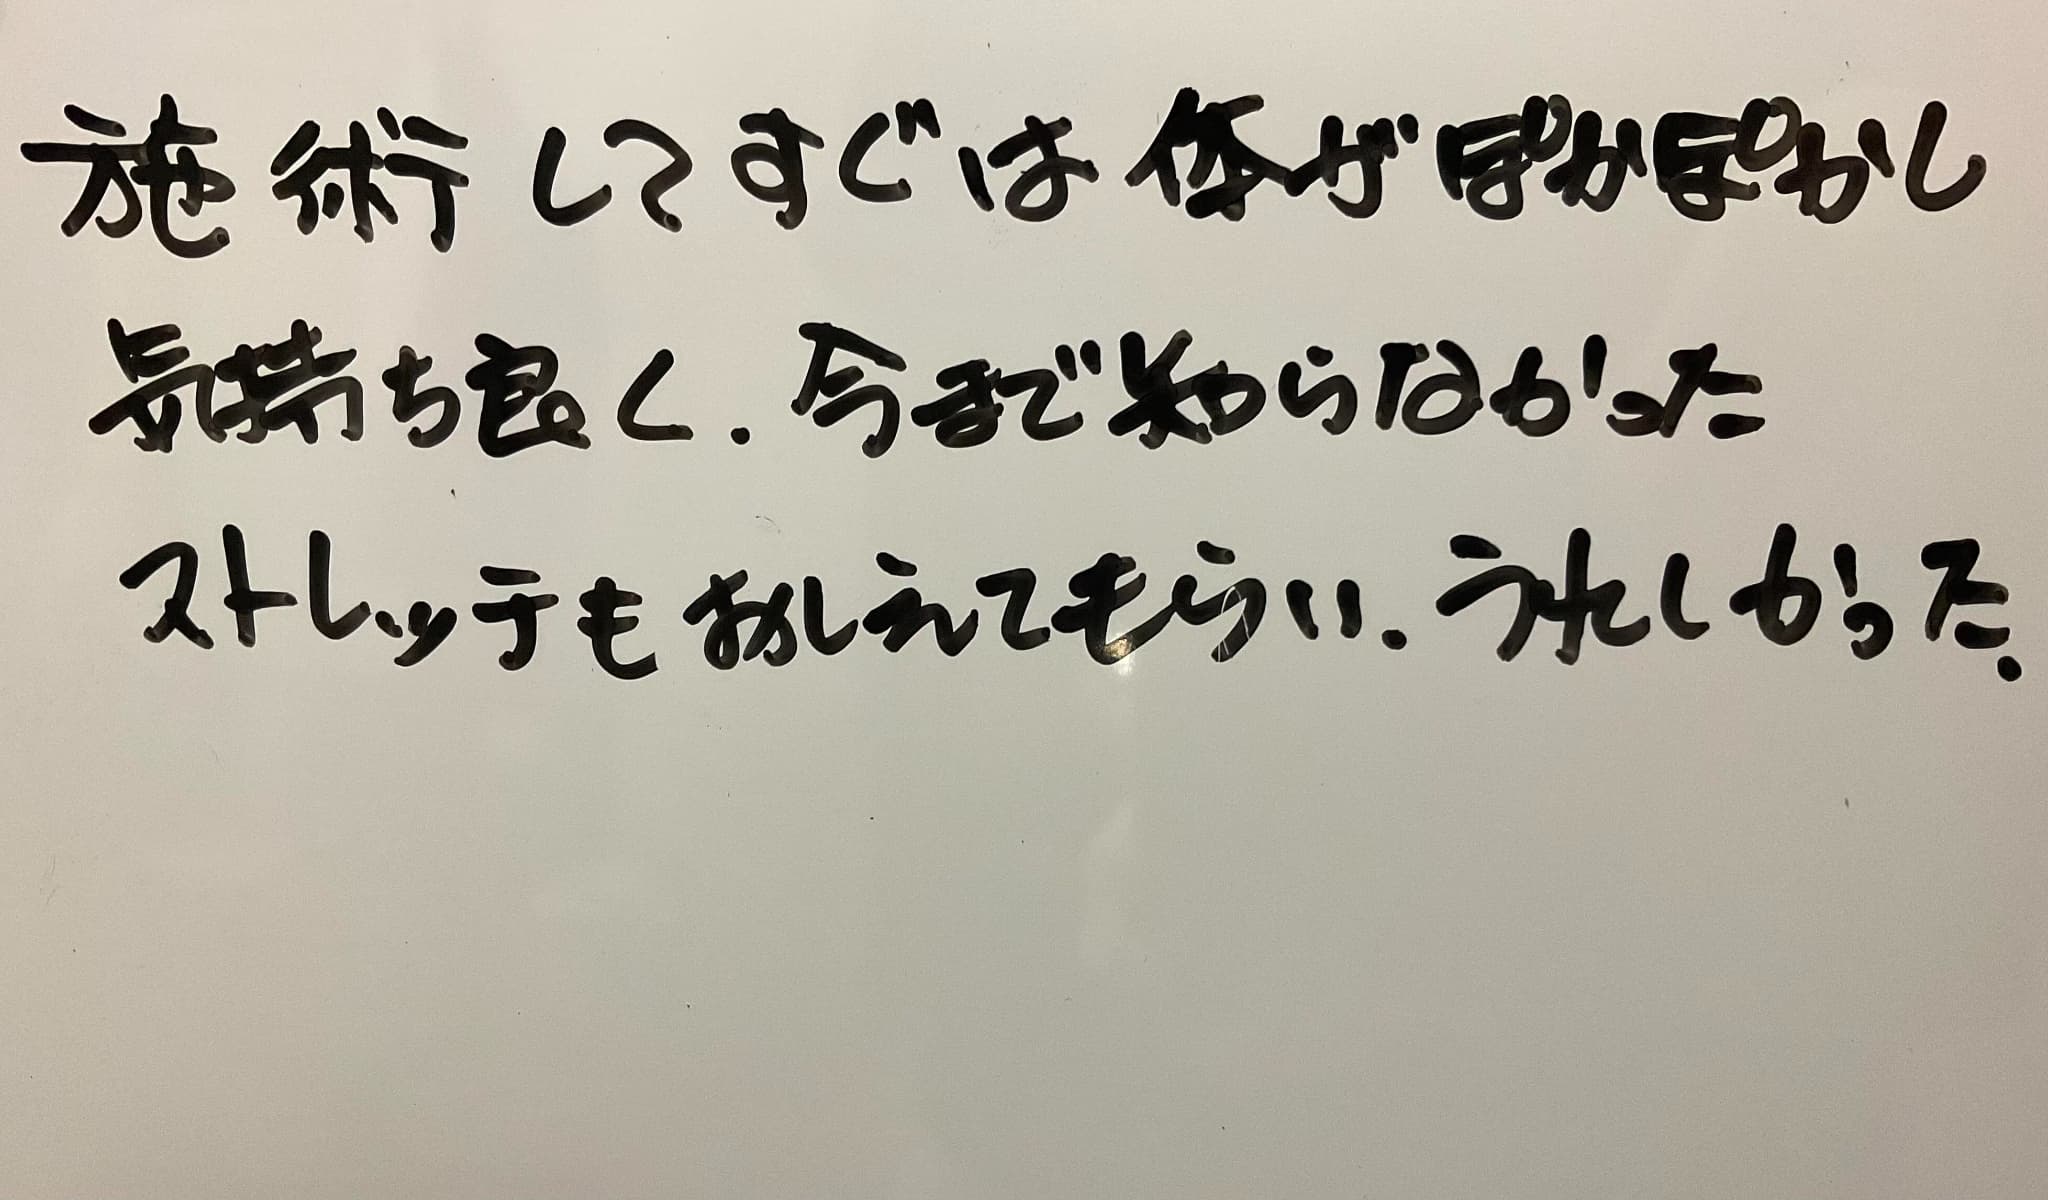 施術してすぐは体がぽかぽかし
気持ち良く.今まで知らなかった
ストレッチもおしえてもらい.うれしかった.